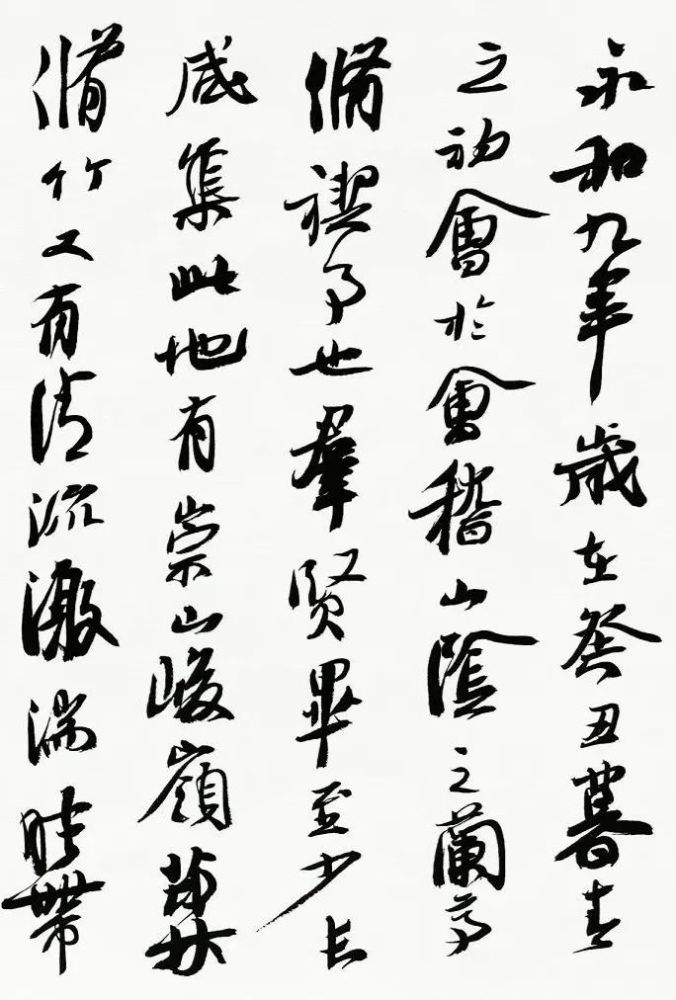 永和九年歲在癸丑暮春
之初會於會稽山陰之蘭亭
脩禊事也羣賢畢至少長
咸集此地有崇山峻嶺茂林
脩竹又有清流激湍暎帶